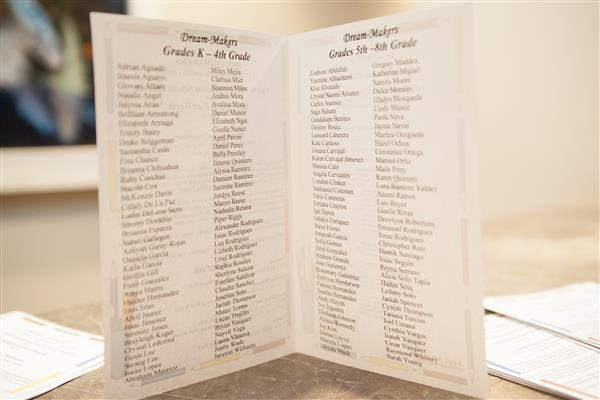 Dream-Makers
Grades K – 4th Grade
Adrian Aguado
Jenesis Aguayo
Giovani Alfaro
Natalie Angel
Julyssa Arias
Brilliant Armstrong
Elizabeth Arriaga
Trinity Batey
Drake Briggeman
Samantha Casas
Esta Chance
Brianna Chihuahua
Ruby Conchas
Nacole Cox
McKenzie Davis
Cillaly De La Paz
Ladin DeLeon Sazo
Jeremy Dookhie
Brianna Esparza
Natali Gallegos
Aaliyah Garay-Rojas
Daniela Garcia
Karla Garcia
Griffin Gill
Yosef Gonzalez
Anya Harris
Haidee Hernandez
Eros Islas
Abril Jaurez
Isaac Jimenez
Serenity Jones
Brayleigh Koger
Crystal Ledezma
Elanja Lee
Sarang Lee
Isaias Lopez
Abraham Mauricio
Miley Mejia
Clarissa Mier
Shareton Miles
Andres Mora
Avelina Mora
Daniel Munoz
Elizabeth Ngai
Giselle Nunez
April Pavon
Daniel Perez
Bella Presley
Jimena Quintero
Alyssa Ramirez
Damien Ramirez
Jasmine Ramirez
Jordyn Reese
Maryn Reese
Nathalie Retana
Piper Riggs
Alexander Rodriguez
Isaac Rodriguez
Lea Rodriguez
Lizbeth Rodriguez
Uriel Rodriguez
Sophia Rosales
Sherlyne Salazar
Estefany Saldivar
Claudio Sanchez
Joseline Soto
Jaelah Thompson
Mateo Torres
Lucas Trujillo
Bryan Vasquez
Nayeli Vega
Laura Vilanova
Justin Wade
Javeion Williams
Dream-Makers
Grades 5th –8th Grade
Zouhour Abdallah
Yasmine Alhachami
Kloe Alvarado
Crystal Naomi Alvarez
Carlos Asensio
Sage Baham
Guadalupe Benites
Destiny Bouie
Leonard Cabrera
Kate Cardoso
Johana Carvajal
Karen Carvajal Jimenez
Marcus Cato
Angela Cervantes
London Clinker
Nathaniel Coleman
Paris Contreras
Terriana Crayton
Ian Duron
Odalys Enriquez
Steve Flores
Amayah Garcia
Sofia Gomez
Ariel Gonzalez
Andrew Grande
Jose Gutierrez
Rosemary Gutierrez
Zerriyea Henderson
Fatima Hernandez
Joselin Hernandez
Andy Huynh
Davionan Johnson
Amaya Kennedy
Joy Kim
Susan Lee
Mariela Lopez
Jakylie Mack
Gregory Maddes
Katherine Miguel
Samira Moore
Dulce Morales
Gladys Mosqueda
Cindy Munoz
Paola Nava
Jayme Navas
Maritza Oceguerda
Hazel Ochoa
Constance Ortega
Marisol Ortiz
Maile Petty
Karen Quintero
Luna Ramirez Valdez
Amoni Ramos
Luis Reyes
Giselle Rivas
Deoviyon Robertson
Emanuel Rodriguez
Josue Rodriguez
Christopher Ruiz
Henrik Santiago
Isaac Segura
Reyna Serrano
Alicia Solis Tapia
Haden Sosa
Leilany Soto
Janiah Spencer
Cyniah Thompson
Tatiana Turcios
Joel Umana
Cynthia Vargas
Isaiah Vasquez
Cesar Vazquez
Raymond Whitney
Sarah Young